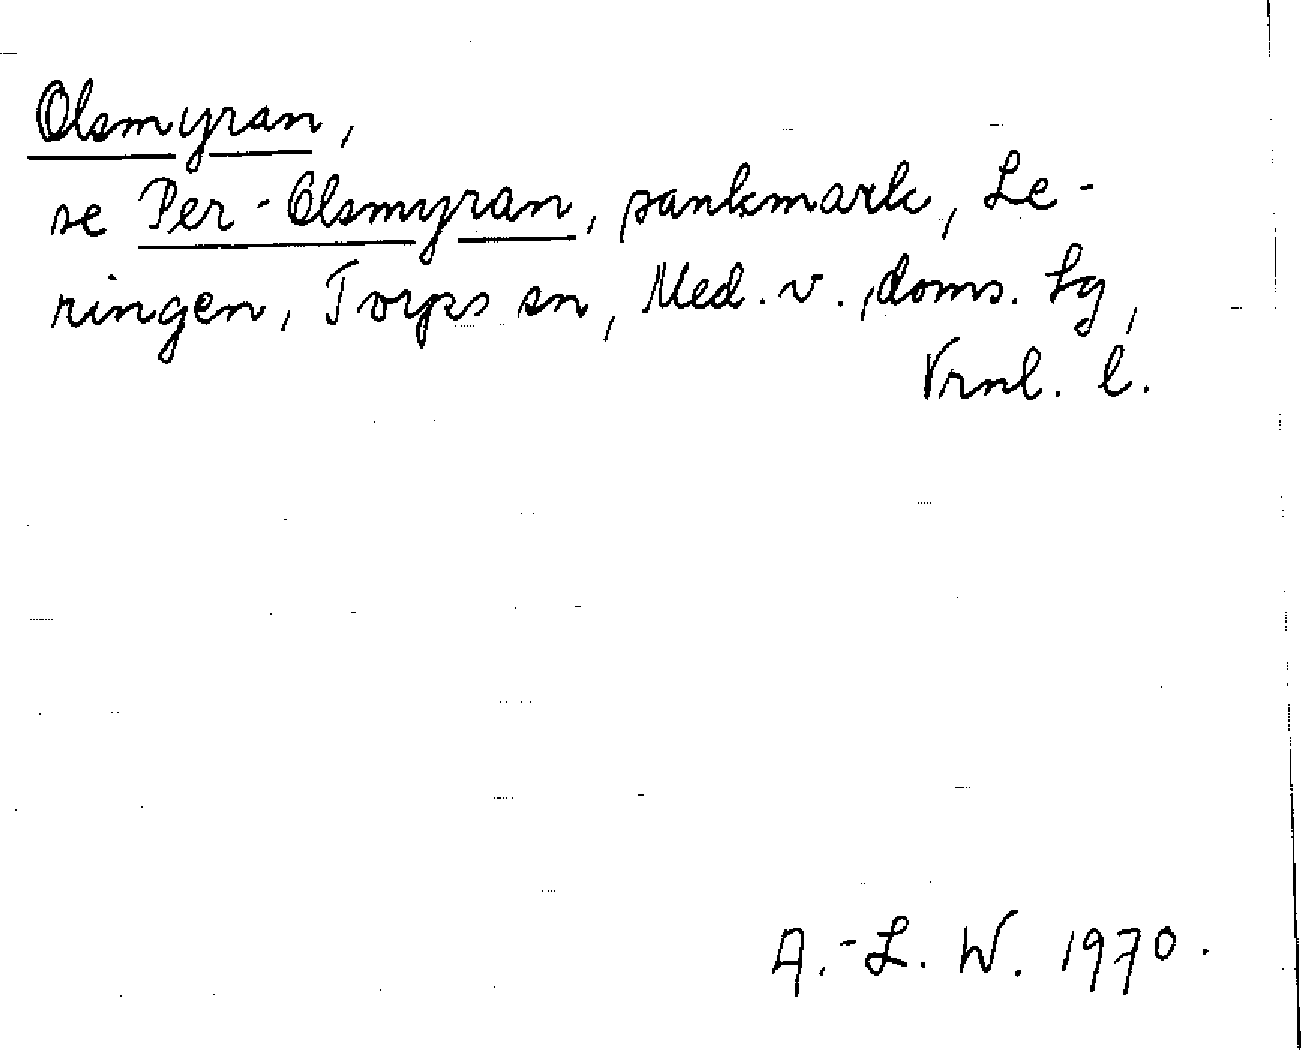 Olsmyran,
se Per-Olsmyran, sankmark, Le-
ringen, Torps sn, Med. v. doms. lg,
Vrnl. l.
A.-L. W. 1970.